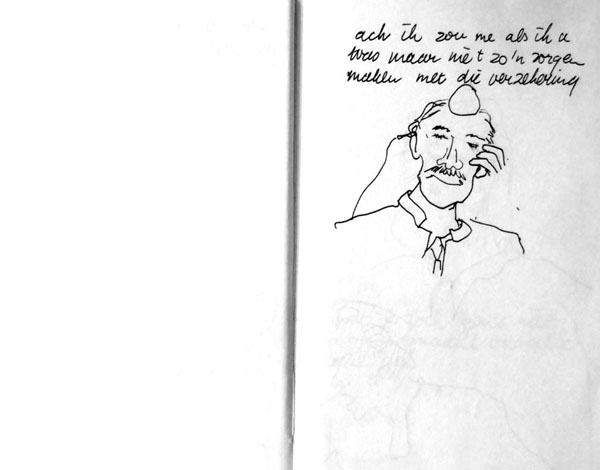 ach ik zou me als ik u
was maar niet zo'n zorgen
maken met die verzekering